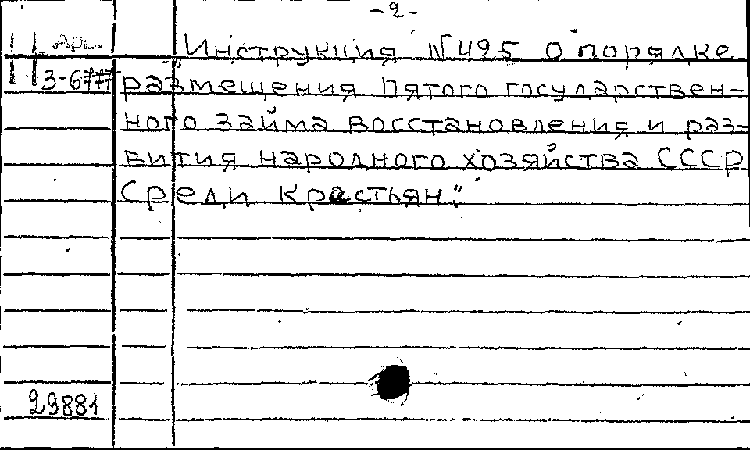 -2-
Арх. Инструкция №495 о порядке
размещения Пятого государствен-
ного займа восстановления и раз-
вития народного хозяйства СССР
среди крестьян."
29881